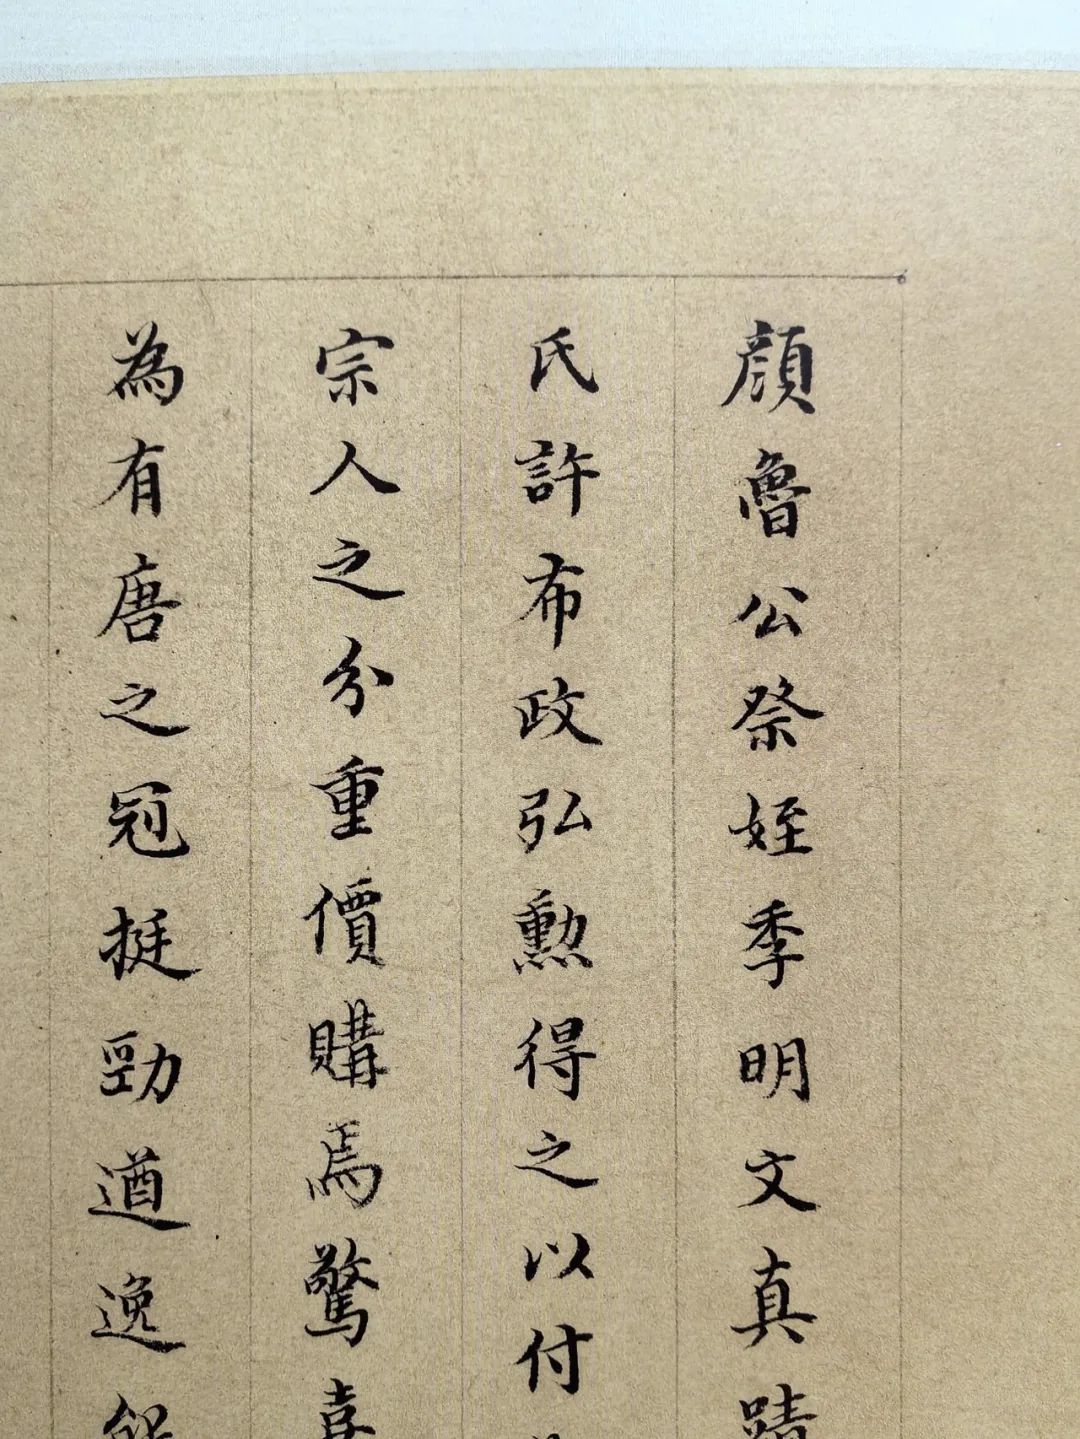 顔魯公祭姪季明文真蹟
氏許布政弘勲得之以付
宗人之分重價購焉驚喜
為有唐之冠挺勁遒逸